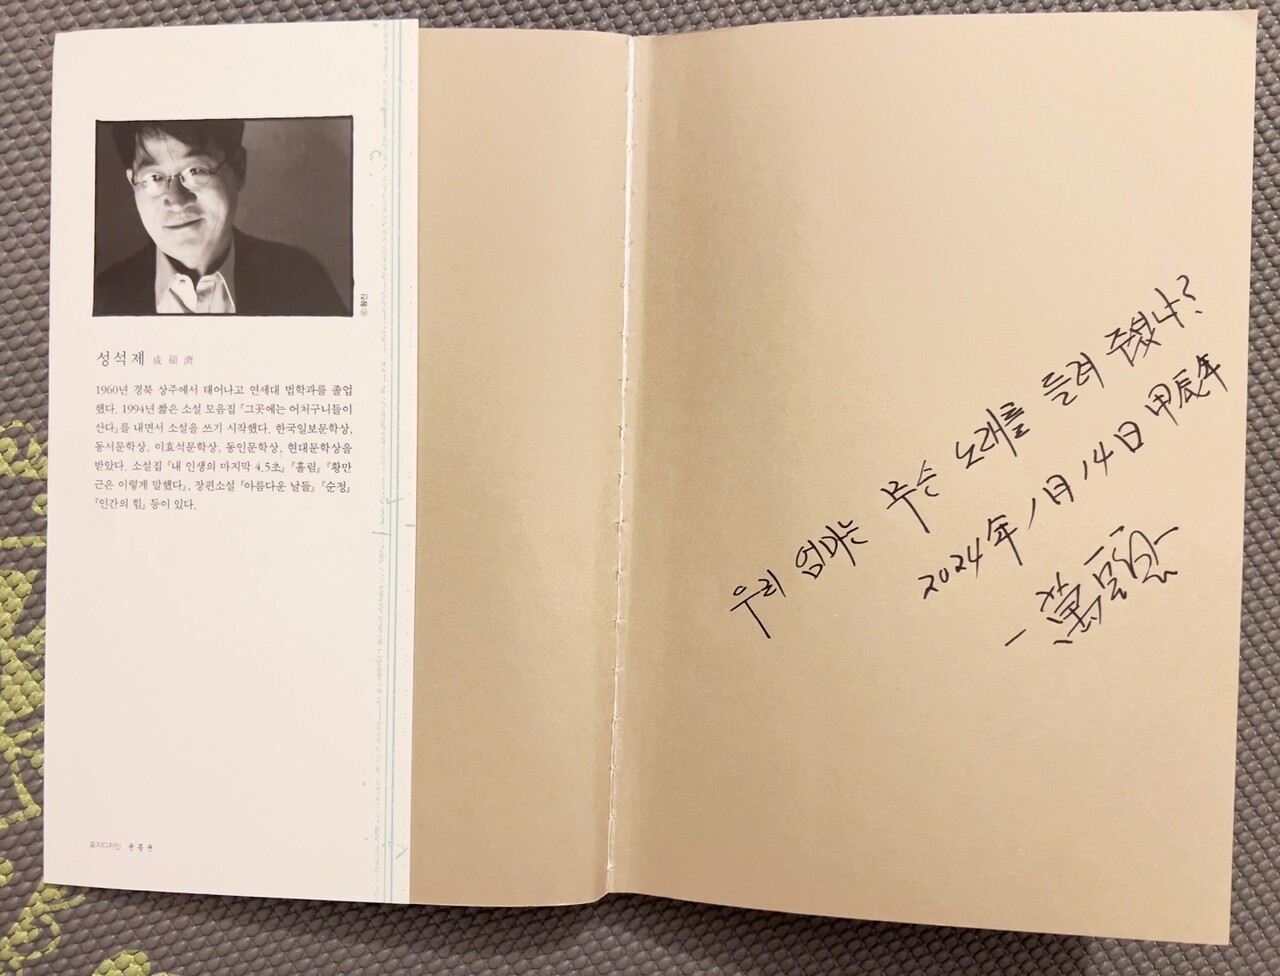 © 황진
성석제 成碩濟
1960년 경북 상주에서 태어나고 연세대 법학과를 졸업
했다. 1994년 짧은 소설 모음집 『그곳에는 어처구니들이
산다』를 내면서 소설을 쓰기 시작했다. 한국일보문학상,
동서문학상, 이효석문학상, 동인문학상, 현대문학상을
받았다. 소설집 『내 인생의 마지막 4.5초』 『홀림』 『황만
근은 이렇게 말했다』, 장편소설 『아름다운 날들』 『순정』
『인간의 힘』 등이 있다.
표지디자인
우리 엄마는 무슨 노래를 들려 주셨나?
2024年 1月 14日 甲辰年